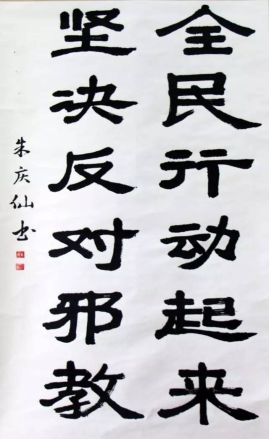 全民行动起来
坚决反对邪教
朱庆仙书